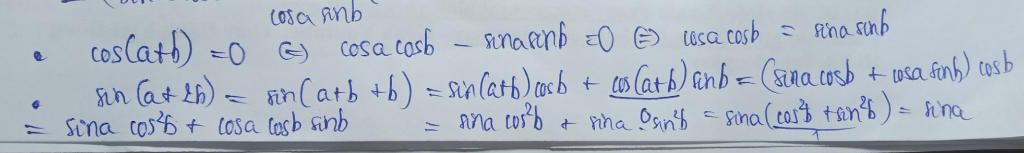 cosa sinb
• cos(a+b) = 0 ⇔ cosa cosb − sina sinb = 0 ⇔ cosa cosb = sina sinb
• sin(a+2b) = sin(a+b+b) = sin(a+b) cosb + cos(a+b) sinb = (sina cosb + cosa sinb) cosb
= sina cos²b + cosa cosb sinb = sina cos²b + sina sin²b = sina(cos²b + sin²b) = sina
1